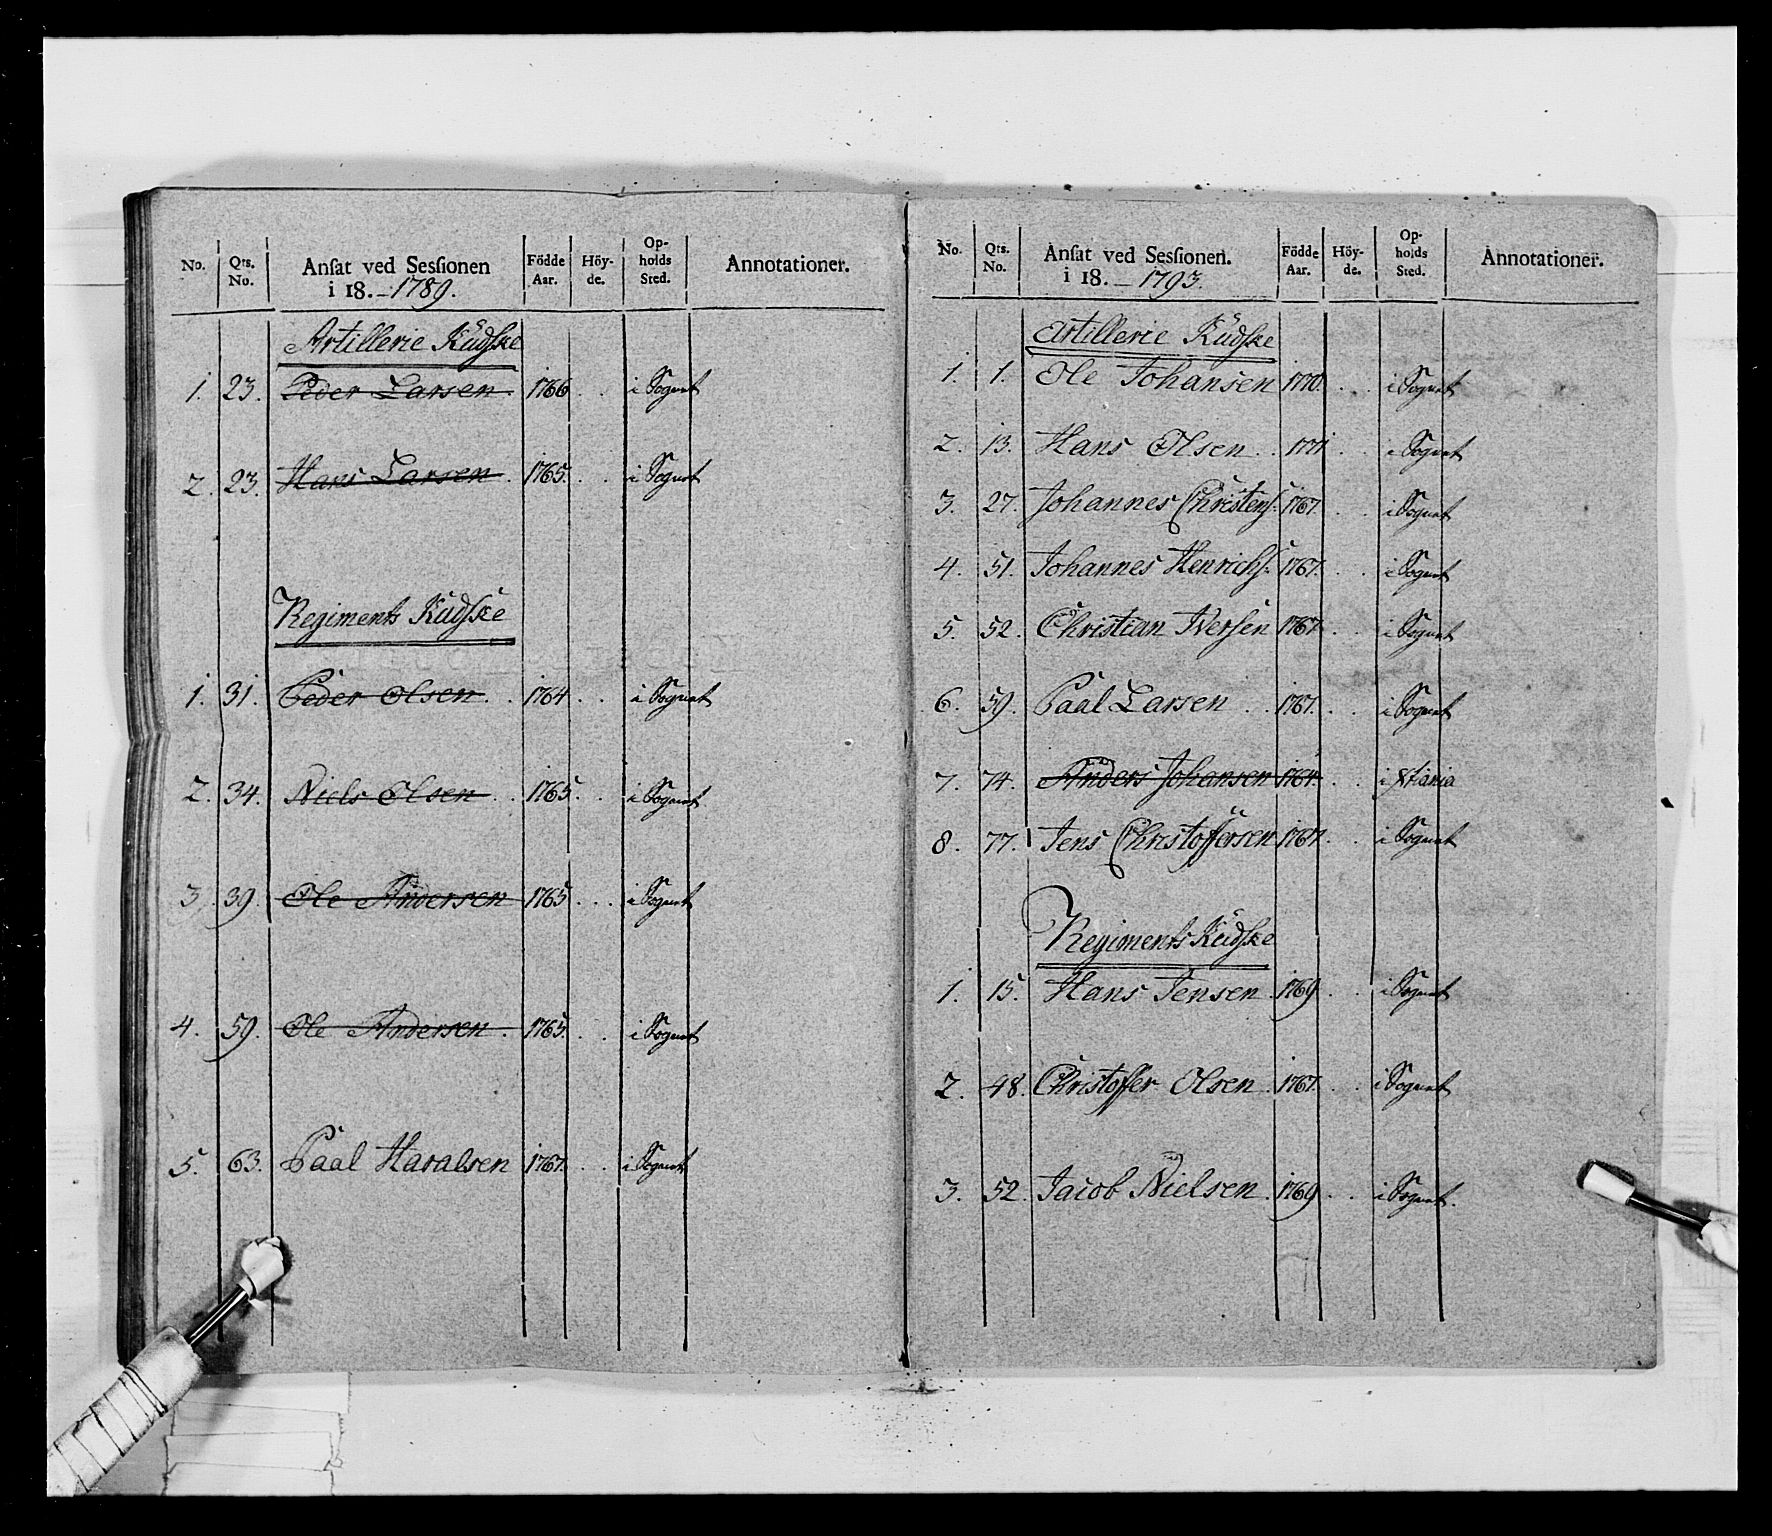 No. Qts. No. Ansat ved Sessionen i 18.-1789. Födde Aar. Höy-de. Op-holds Sted. Annotationer.
Artillerie Kudske
1. 23. Peder Larsen. 1766 . . i Sognet
2. 23. Hans Larsen. 1765. . . i Sognet
Regiments Kudske
1. 31. Peder Olsen. . 1764 . . i Sognet
2. 34. Niels Olsen . . 1765. . . i Sognet
3. 39. Ole Andersen 1765 . . . i Sognet
4. 59. Ole Andersen. 1765. . . i Sognet
5. 63. Paal Haralsen 1767. . . i Sognet
No. Qts. No. Ansat ved Sessionen. i 18.-1793. Födde Aar. Höy-de. Op-holds Sted. Annotationer.
Artillerie Kudske
1. 1. Ole Johansen 1770. . . i Sognet
2. 13. Hans Olsen . . 1771 . . i Sognet
3. 27. Johannes Christens: 1767. . . i Sognet
4. 51. Johannes Henrichs: 1767. . . i Sognet
5. 52. Christian Iversen 1767 . . i Sognet
6. 59. Paal Larsen . . 1767. . . i Sognet
7. 74. Anders Johansen 1764. . . i Xtiania
8. 77. Jens Christoffersen 1767 . . i Sognet
Regiments Kudske
1. 15. Hans Jensen . 1769 . . i Sognet
2. 48. Christoffer Olsen . 1767. . . i Sognet
3. 52. Jacob Nielsen . 1769 . . i Sognet.